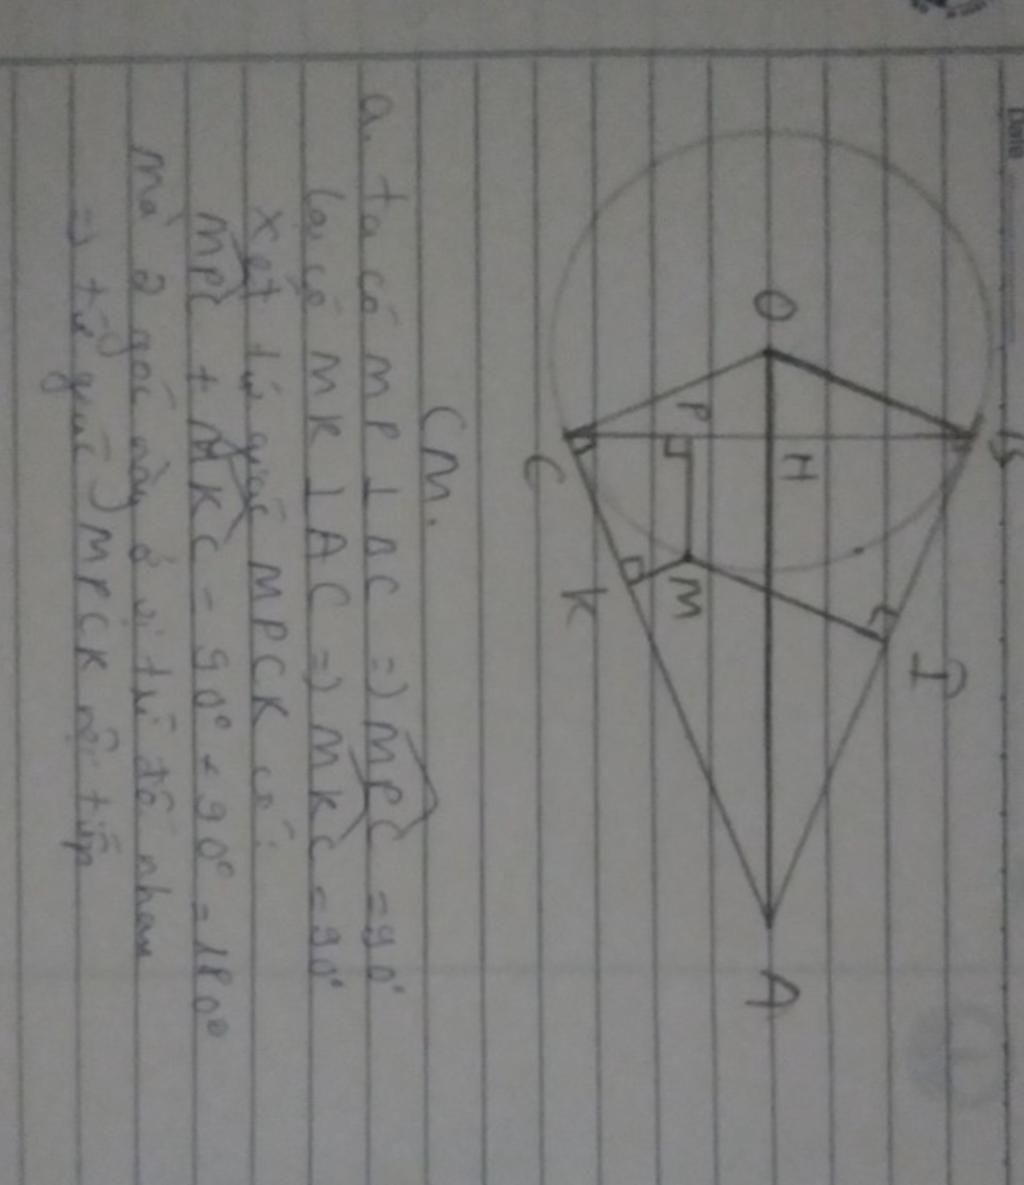 Date
B
I
O
H
A
P
M
C
K
CM.
a, ta có MP ⊥ BC => MPC = 90°
lại có MK ⊥ AC => MKC = 90°
xét tứ giác MPCK có:
MPC + MKC = 90° + 90° = 180°
mà 2 góc này ở vị trí đối nhau
=> tứ giác MPCK nội tiếp